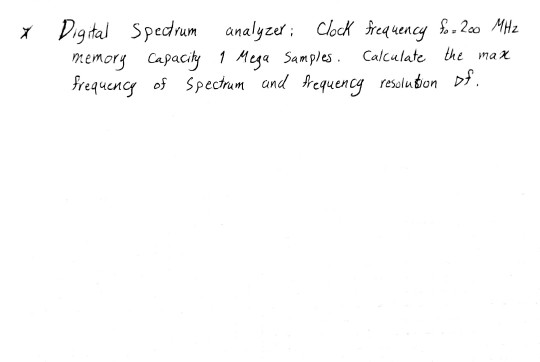 * Digital Spectrum analyzer; Clock frequency f₀=200 MHz
memory capacity 1 Mega Samples. Calculate the max
frequency of Spectrum and frequency resolution Δf.